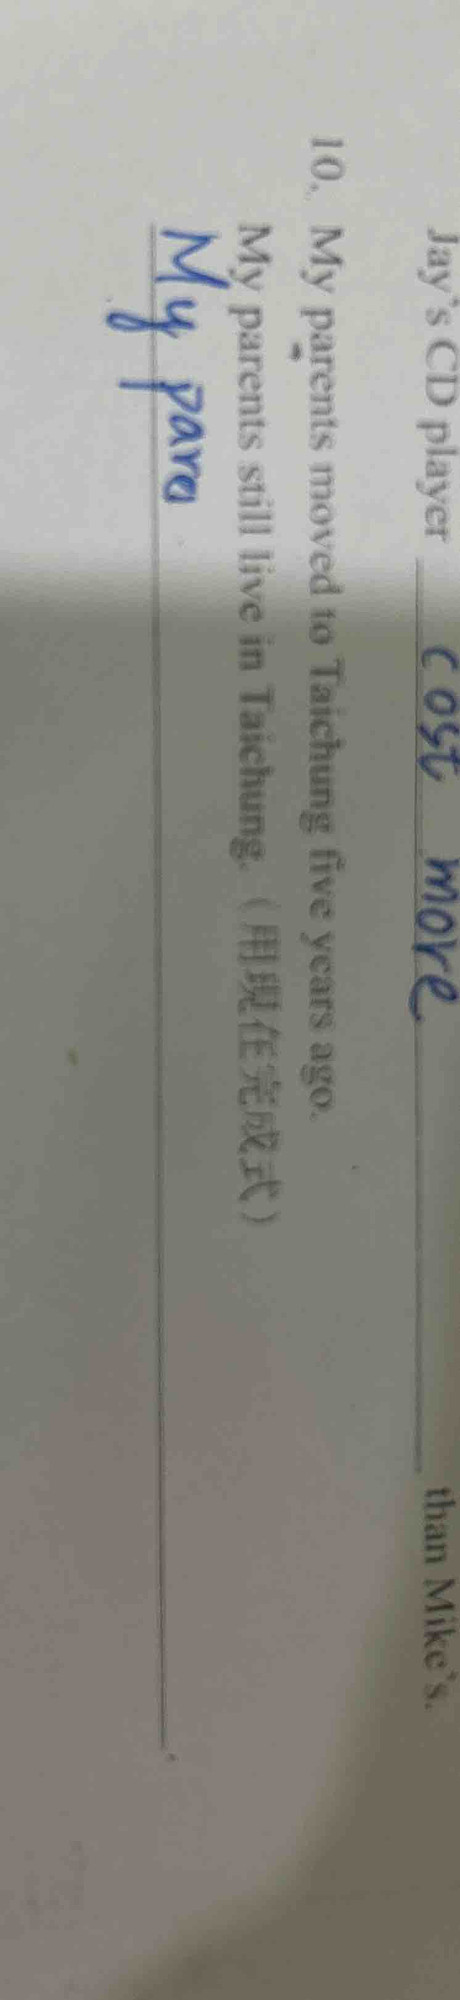 Jay's CD player cost more than Mike's.
10. My parents moved to Taichung five years ago.
My parents still live in Taichung.（用現在完成式）
My para